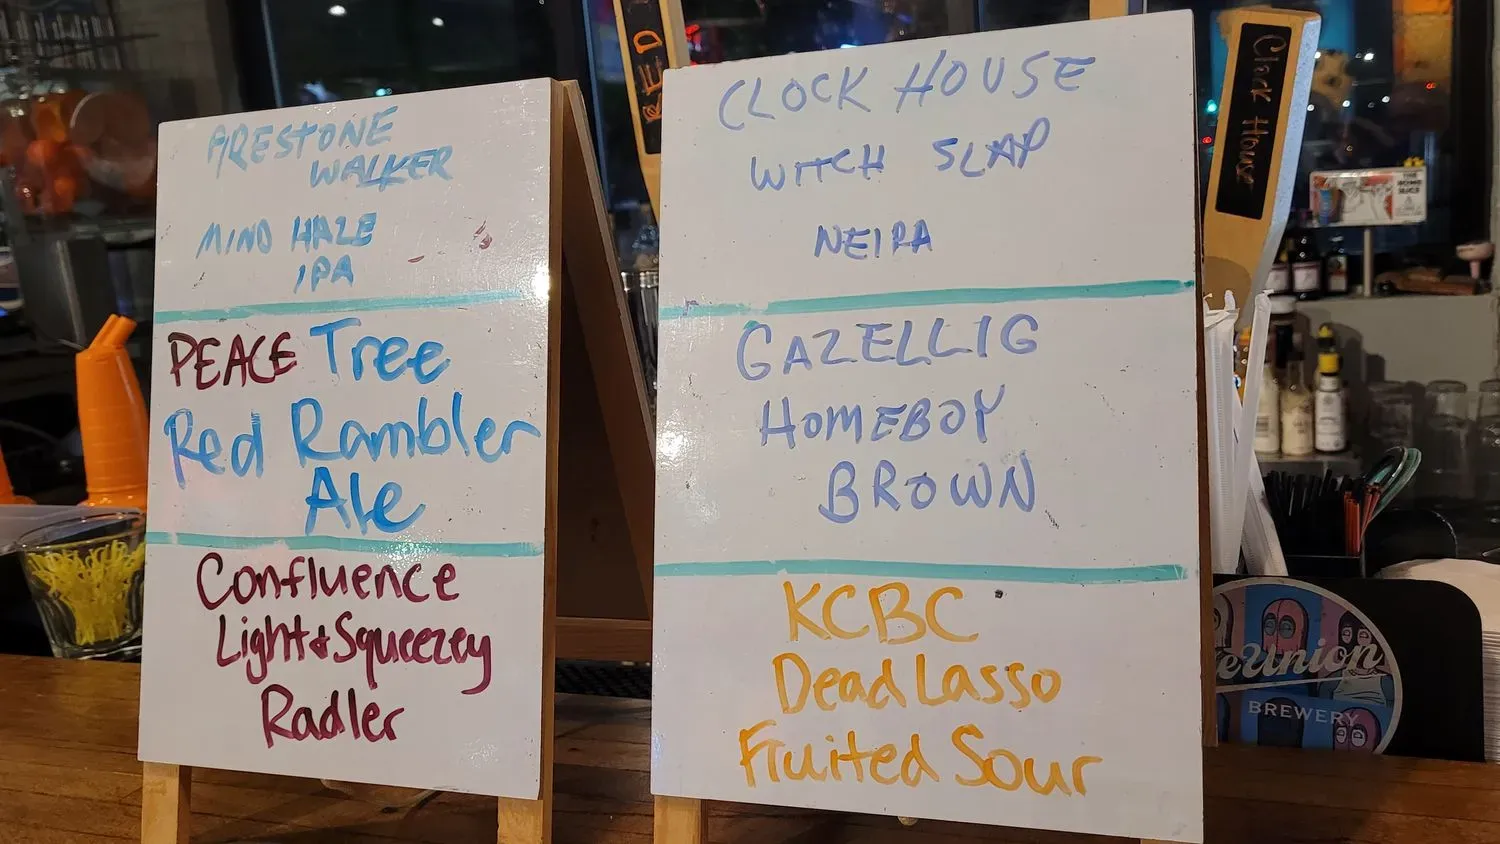 FIRESTONE
WALKER
MIND HAZE
IPA
PEACE Tree
Red Rambler
Ale
Confluence
Light & Squeezey
Radler
RED
CLOCK HOUSE
WITCH SLAP
NEIPA
GAZELLIG
HOMEBOY
BROWN
KCBC
Dead Lasso
Fruited Sour
Clock House
eUnion
BREWERY